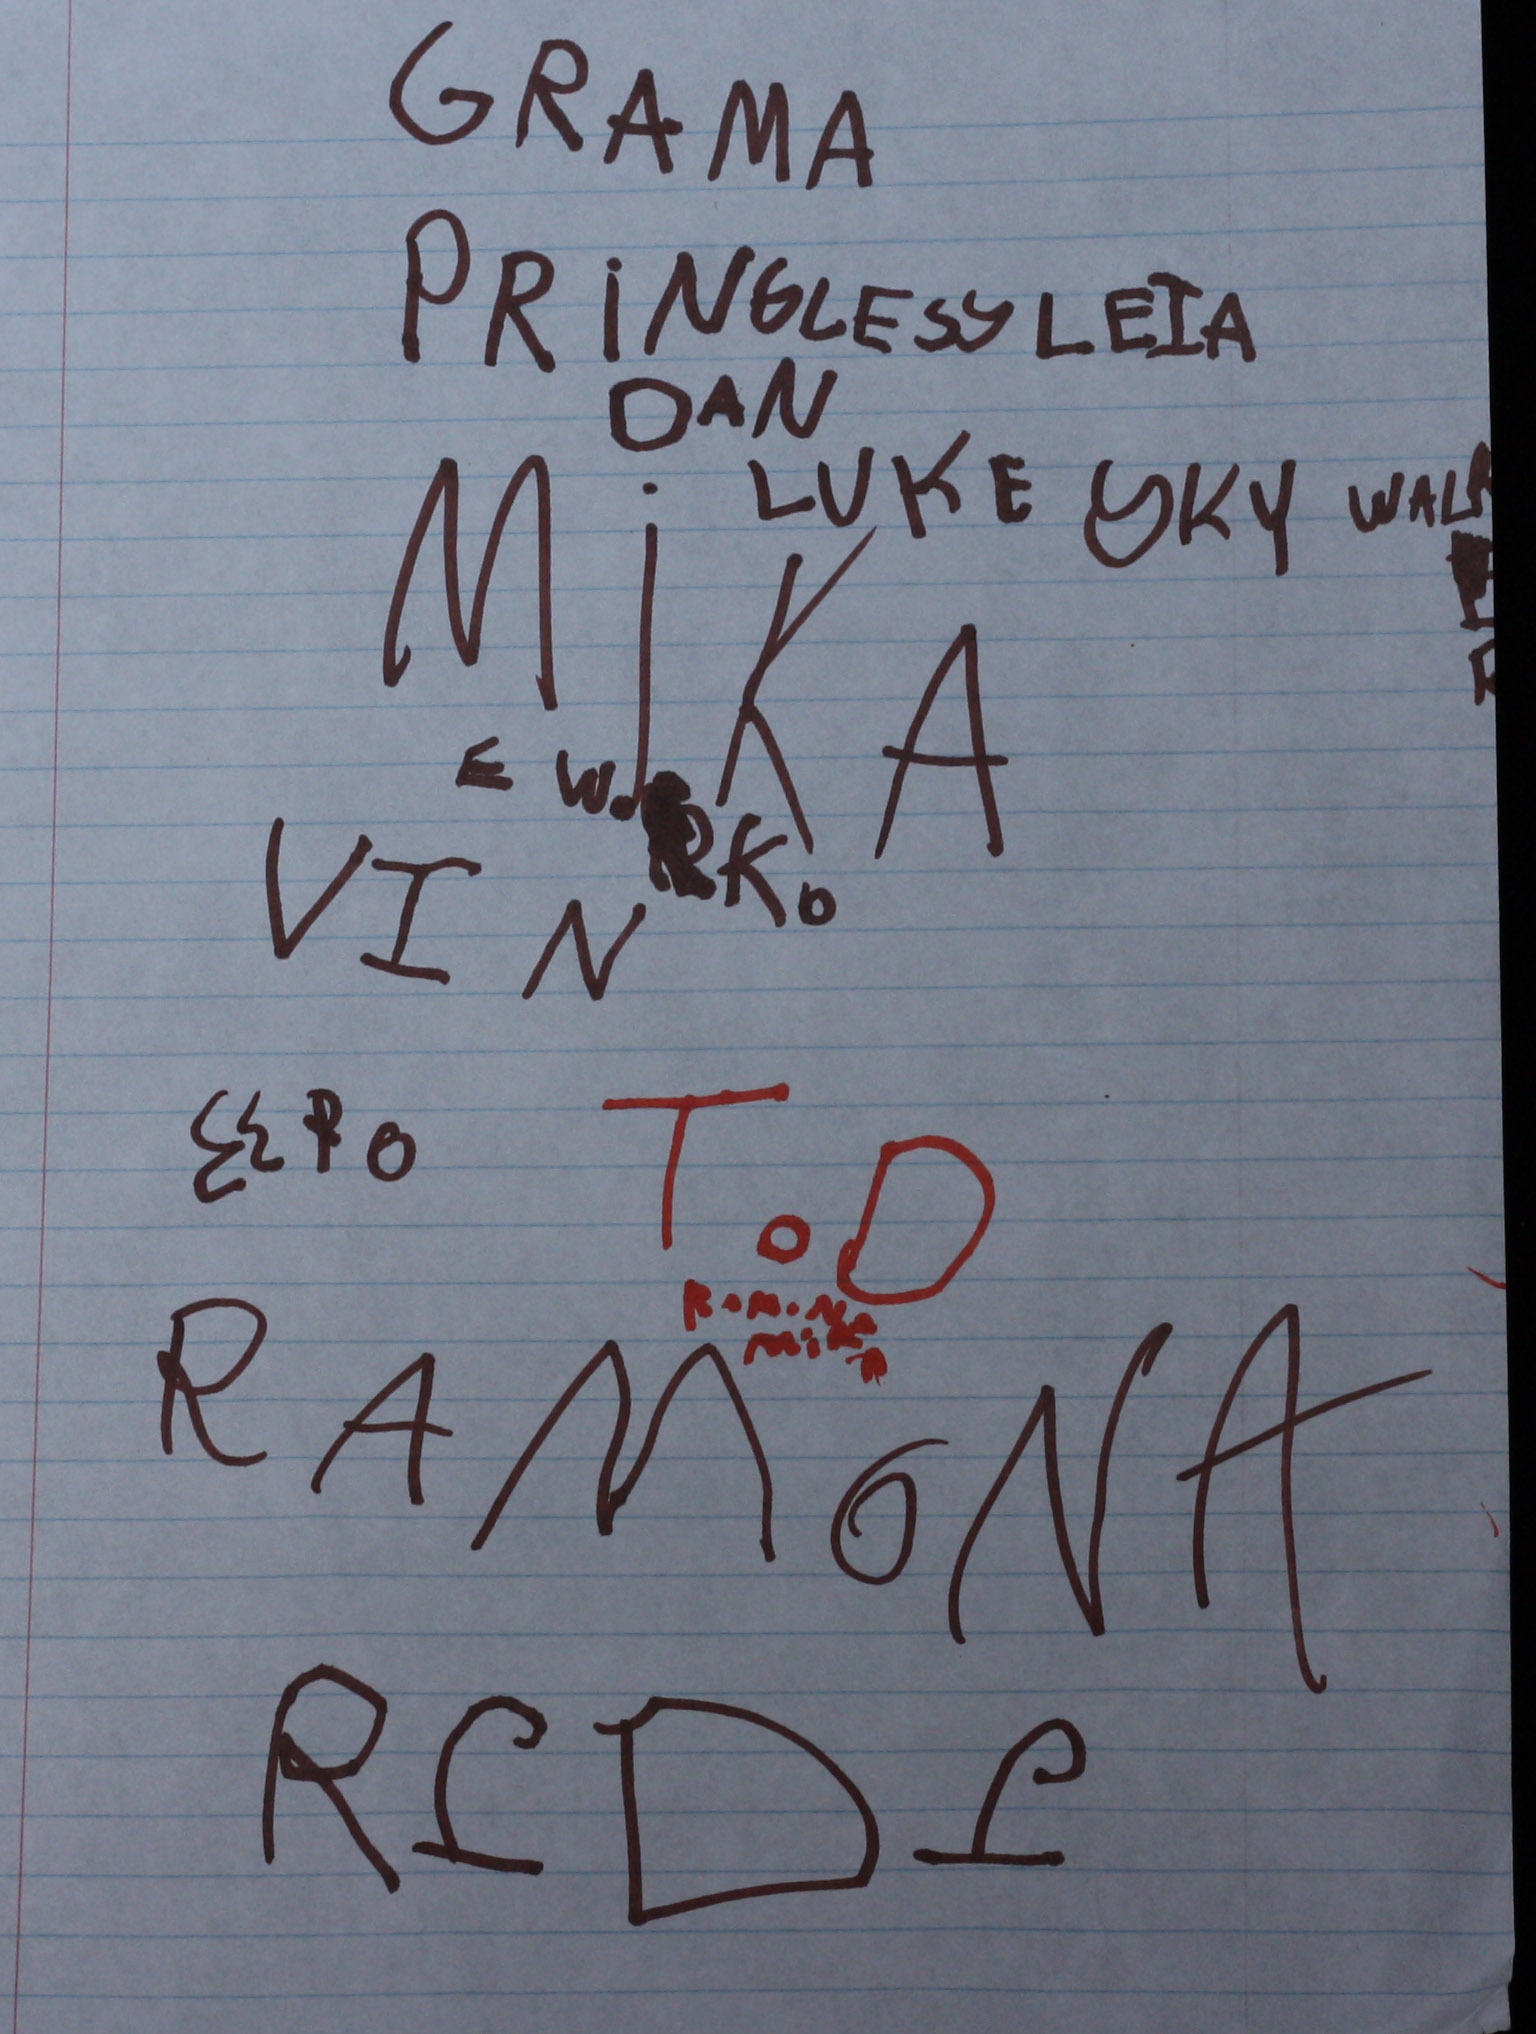 GRAMA
PRiNGLESYLEIA
DAN
LUKE SKY WALK
E
R
MiKA
E W. RKo
VIN
PO
ToD
RaMoNa
MiKA
RAMONA
R2D2